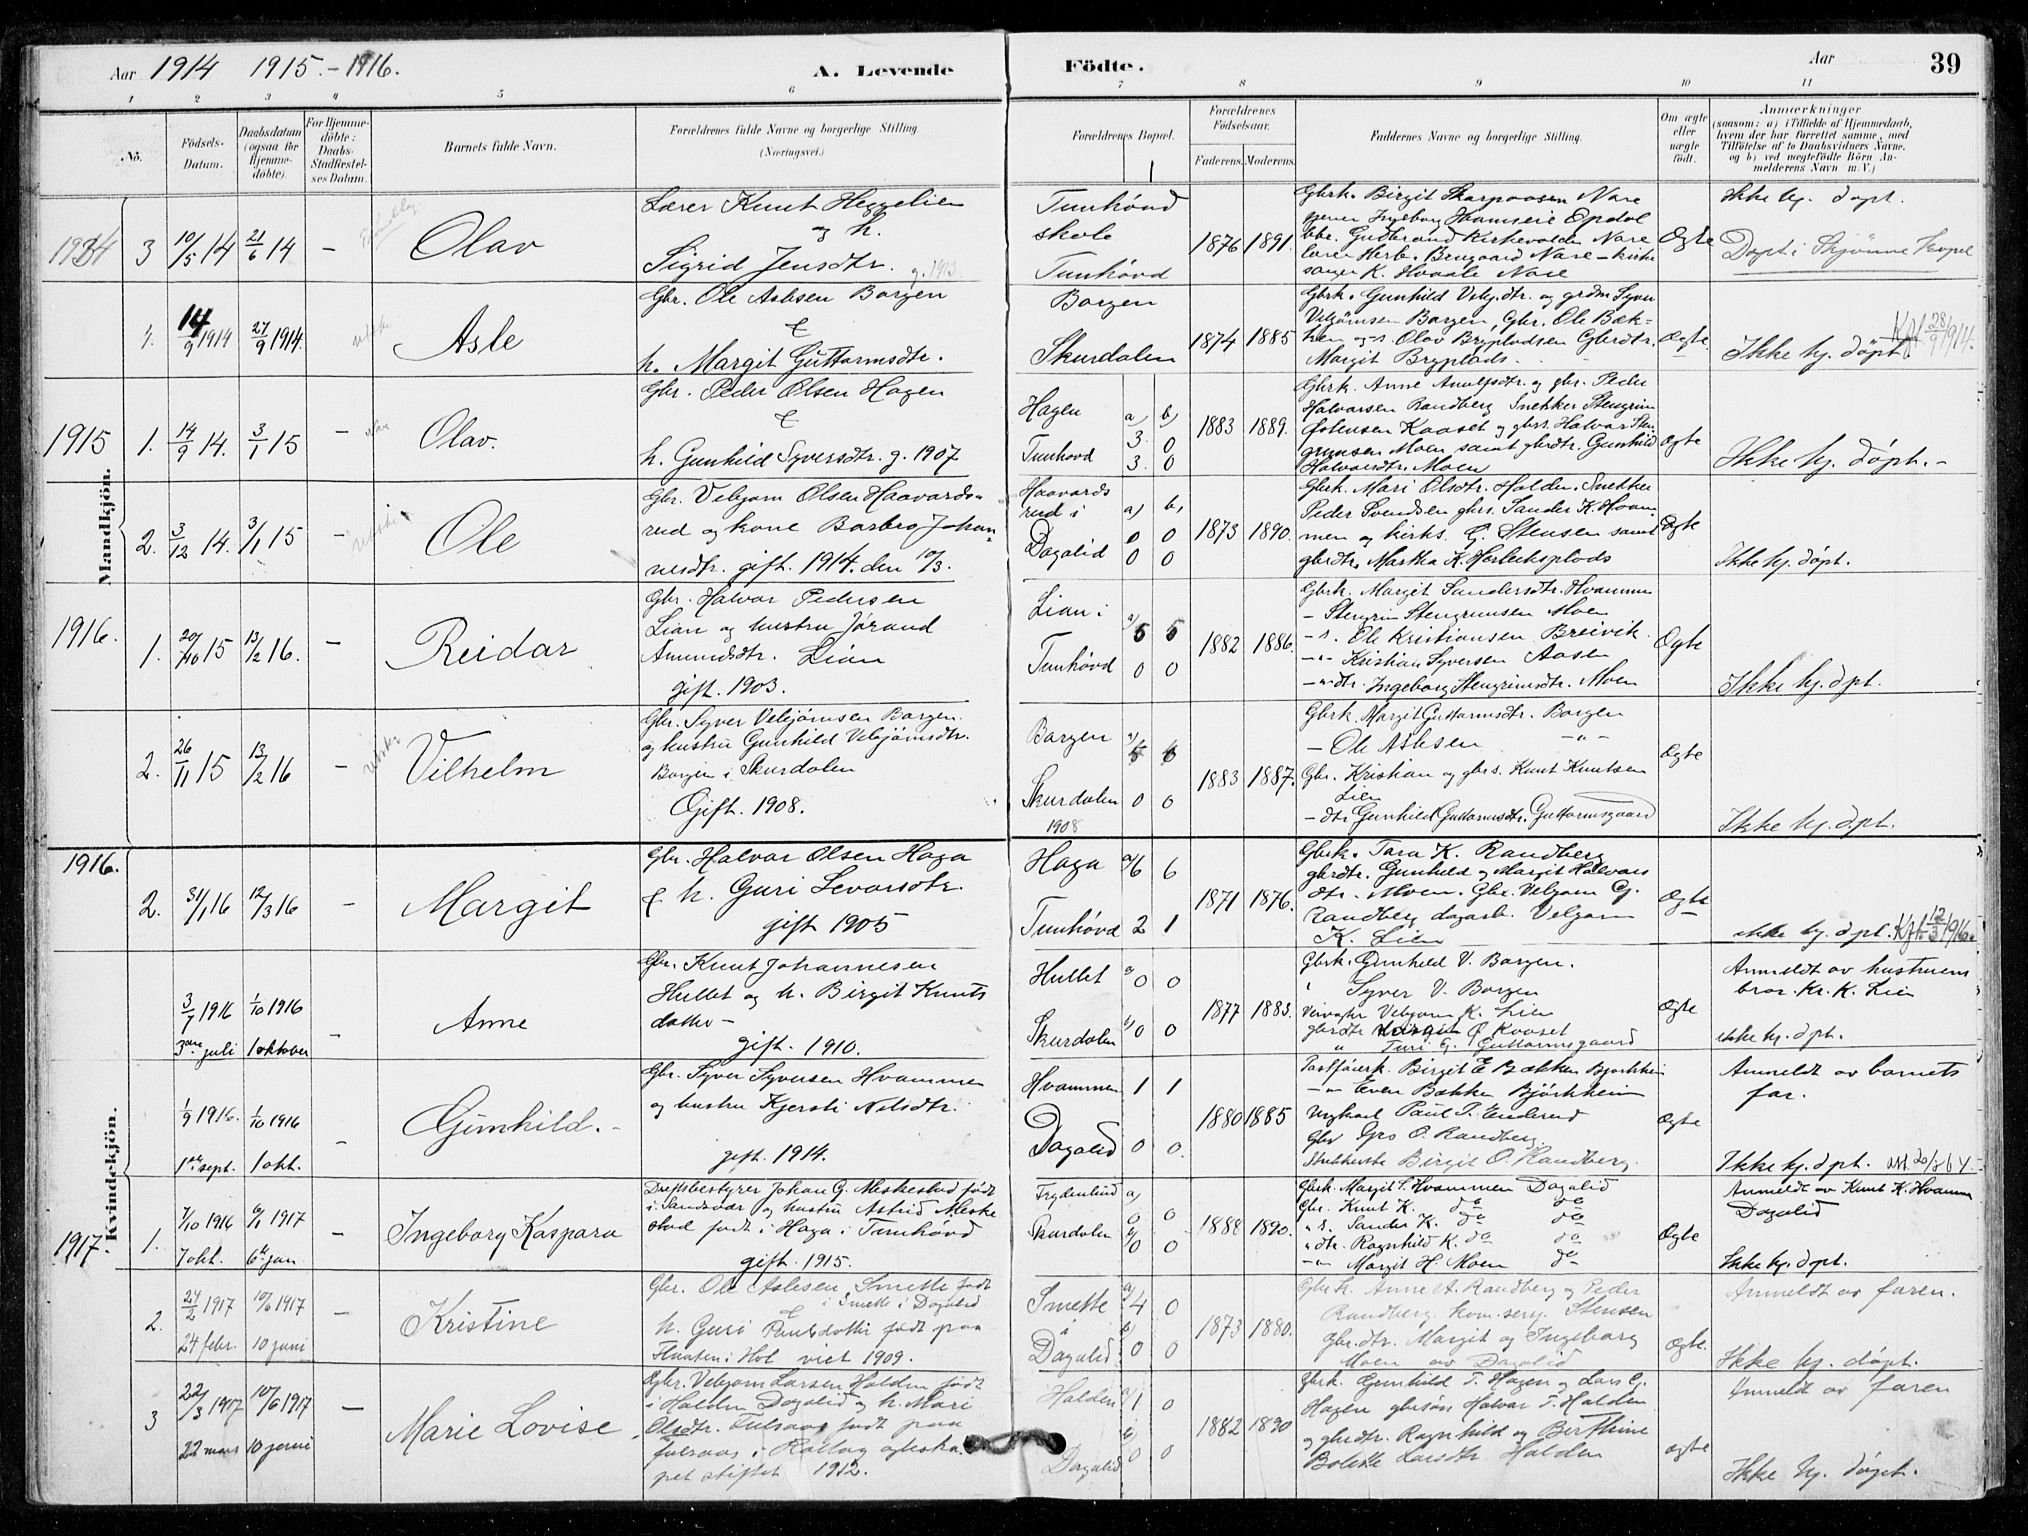 Aar 1914 1915.-1916.
A. Levende Födte.
Aar
39
1 2 3 4 5 6 7 8 9 10 11
No.
Födsels-Datum.
Daabsdatum (ogsaa for Hjemmedöbte).
For Hjemmedöbte: Daabs-Stadfæstelses Datum.
Barnets fulde Navn.
Forældrenes fulde Navne og borgerlige Stilling.
(Næringsvei.)
Forældrenes Bopæl.
Forældrenes Födselsaar.
Faderens. Moderens.
Faddernes Navne og borgerlige Stilling.
Om ægte eller uægte födt.
Anmærkninger
(saasom: a) i Tilfælde af Hjemmedaab, hvem der har forrettet samme, med Tilföielse af to Daabsvidners Navne, og b) ved uægtefödte Börn Anmelderens Navn m. V.)
Mandkjön.
3 10/5 14 21/6 14 - Olav
Lærer Knut Heggelien
og h.
Sigrid Jensdtr. g. 1913.
Tunhövd
skole
Tunhövd
1876 1891.
Gbrk. Birgit Skarpaasen Nore
Ingeborg Opdal
Gudbrand Kirkevolden Nore
lærer Herb. Brugaard Nore - kirke
sanger K. Hvaale Nore
Ægte
Ikke hj. döpt.
Döpt i Skjönne Kapel
1. 14/9 1914 27/9 1914. Asle
Gbr. Ole Aslesen Borgen
&
h. Margit Guttormsdtr.
Borgen
Skurdalen
1874 1885
Gbrk. Gunhild Vebj.dtr. og grdm Syver
Vebjörnsen Borgen, Gbr. Ole Bæk-
ken og s. Olav Brypladsen Gbrdtr.
Margit Bryplads.
Ægte.
Ikke hj. döpt. 28/9 1914.
1915 1. 14/9 14. 3/1 15 - Olav.
Gbr. Peder Olsen Hagen
&
h. Gunhild Syversdtr. g. 1907
Hagen a) b)
3. 0
Tunhövd 3. 0
1883 1889.
Gbrk. Anne Arnulfsdtr. og gbr. Peder
Halvorsen Randberg Snekker Stengrim
Østensen Kaaset og gbrs. Halvor Sten
grimsen Moen samt gbrdtr. Gunhild
Halvorsdtr. Moen
Ægte
Ikke hj. döpt.-
2. 3/12 14. 3/1 15 - Ole
Gbr. Vebjørn Olsen Haavards-
rud og kone Barbro Johan-
nesdtr. gift. 1914. den 10/3.
Haavards
rud i a) b)
0 0
Dagalid 0 0
1873 1890.
Gbrk. Mari Olsdtr. Halden. Snekker
Peder Svendsen gbrs. Sander K. Hvam
men og kirks. G. Stensen samt
gbrdtr. Martha K. Herleiksplads
Ægte
Ikke hj. döpt.
1916. 1. 20/10 15 13/2 16. - Reidar
Gbr. Halvor Pedersen
Lian og hustru Jørand
Amundsdtr. Lian
gift. 1903.
Lian i
a) 5 5
Tunhövd 0 0
1882 1886.
Gbrk. Margit Sandersdtr. Hvammen
- Stengrim Stengrimsen Moen
- s. Ole Kristiansen Breivik.
-"- Kristian Syversen Aasen
-" dtr. Ingeborg Stengrimsdtr. Moen
Ægte
Ikke hj. dpt.
2. 26/11 15 13/2 16 - Vilhelm
Gbr. Syver Vebjörnsen Borgen.
og hustru Gunhild Vebjörnsdtr.
Borgen i Skurdalen
Gift. 1908.
Borgen
Skurdalen 0 0
1908
1883 1887.
Gbrk. Margit Guttormsdtr. Borgen
- Ole Aslesen -"-
Gbr. Kristian og gbrs. Knut Knutsen
Lien
- dtr Gunhild Guttormsdtr. Guttormsgaard
Ægte
Ikke hj. dpt.
Kvindekjön.
1916.
2. 31/1 16 12/3 16 - Margit
Gbr. Halvor Olsen Haga
& h. Guri Levorsdtr.
gift 1905
Haga a) 6 6
Tunhövd 2 1
1871 1876.
Gbrk. Tora K. Randberg
gbrdtr. Gunhild og Margit Halvors
dtr. Moen. Gbr. Vebjørn G.
Randberg dagarb. Vebjørn
K. Lien
Ægte
ikke hj. dpt. 12/3 1916.
3/7 1916 1/10 1916
3die juli 1 oktober
- Anne
Gbr. Knut Johannesen
Hullet og h. Birgit Knuts
datter -
gift. 1910.
Hullet a) 0 0
Skurdalen b) 0 0
1877 1883.
Gbrk. Gunhild V. Borgen.
" Syver V. Borgen
Vebjørn K. Lien
gbrdtr. Birgit O. Kaaset
" Turi G. Guttormsgaard
Ægte
Anmeldt av hustruens
bror. Kr. K. Lien
ikke hj. dpt.
1/9 1916. 1/10 1916
1ste sept. 1 okt.
- Gunhild.-
Gbr. Syver Syversen Hvammen
og hustru Kjersti Nilsdtr.
gift. 1914.
Hvammen 1 1
Dagalid 0 0.
1880 1885
Birgit E Bækken Bjørkheim
-"- Even Bækken Bjørkheim
Ungkarl Paul P. Enderud
Gbr Gro O. Randberg.
Birgit O. Randberg.
Ægte
Anmeldt av barnets
far.
Ikke hj. dpt.
1917. 1. 7/10 1916 6/1 1917
7 okt. 6te jan.
- Ingeborg Kaspara
Driftsbestyrer Johan G. Meskestad født
i Sandsvær og hustru Astrid Meske
stad født i Haga i Tunhövd
gift. 1915.
Frydenlund a)
0 0
Skurdalen b) 0 0
1888 1890.
Gbrk. Margit S. Hvammen Dagalid
Gbr. Knut K. do do
" s. Sander K. do do
" dtr. Ragnhild K. do do
-"- Margit H. Moen do
Ægte
Anmeldt av Knut K. Hvamm
Dagalid
Ikke hj. dpt.
2. 24/2 1917 10/6 1917
24 febr. 10 juni
- Kristine
Gbr. Ole Aslesen Smette født
i Smette i Dagalid
&
h. Guri Paulsdatter født paa
i Hol viet 1909.
Smette a) 4 0
i b)
Dagalid 0 0
1873 1880.
Gbrk. Anne A. Randberg og Peder
Randberg. kom.serg. Stensen
gbr.dtr. Margit og Ingeborg
Moen av Dagalid
Ægte.
Anmeldt av faren.
Ikke hj. döpt.
3 22/3 1917 10/6 1917
22 mars 10 juni
- Marie Lovise
Gbr. Vebjørn Larsen Halden født
i Halden Dagalid og h. Mari
Olsdtr. Fulsaas født paa
Fulsaas i Rollag egteska
pet stiftet 1912.
Halden a) 1 0
b)
Dagalid 0 0
1882 1890
Gbrk. Gunhild T. Hagen og Lars G.
Hagen gbrsøn Halvor T. Halden
og gbrdtr. Ragnhild og Berthine
Bolette Larsdtr Halden
ægte
Anmeldt av faren
Ikke hj. döpt.